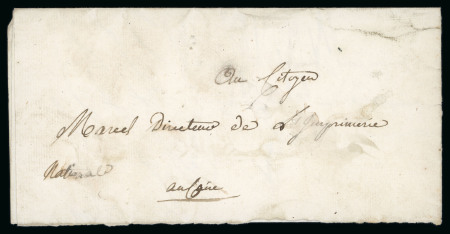 Au Citoyen
Marcel Directeur de L'Imprimerie
Nationale
au Caire